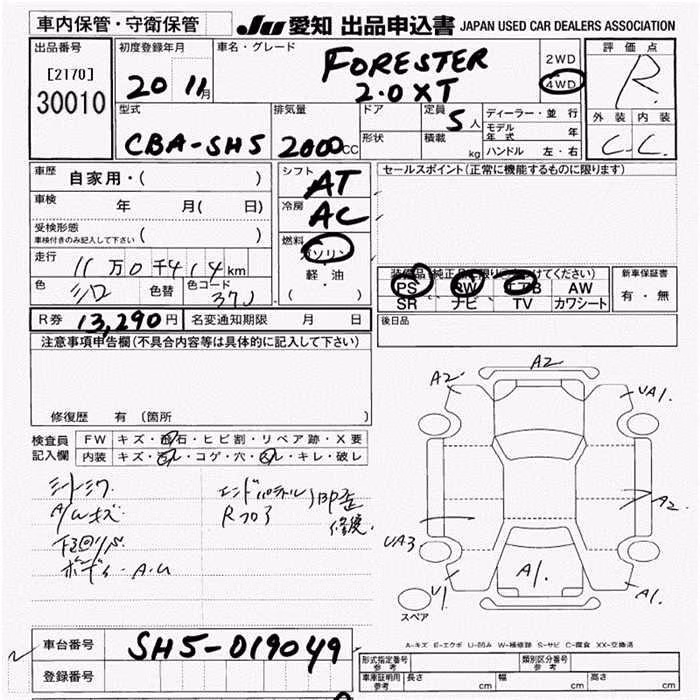 車内保管・守衛保管 JU 愛知 出品申込書 JAPAN USED CAR DEALERS ASSOCIATION
出品番号 初度登録年月 車名・グレード 評価点
[2170] 20 11月 FORESTER 2WD R
30010 2.0XT 4WD
型式 排気量 ドア 定員 5人 ディーラー・並行 外装 内装
CBA-SH5 2000cc 形状 積載 kg モデル年式 年 C C
ハンドル 左・右
車歴 自家用・( ) シフト AT セールスポイント(正常に機能するものに限ります)
車検 年 月( 日) 冷房 AC
受検形態 ( )
車検付きのみ記入して下さい
燃料 ガソリン
走行 11万0千414km 軽油 新車保証書
色 シロ 色替 色コード 37J (・) PS PW エアB AW 有・無
SR ナビ TV カワシート
R券 13,290円 名変通知期限 月 日 後日品
注意事項申告欄(不具合内容等は具体的に記入して下さい)
修復歴 有(箇所
A2 A2 UA1.
検査員 FW キズ・飛石・ヒビ割・リペア跡・X要
記入欄 内装 キズ・汚レ・コゲ・穴・スレ・キレ・破レ
A/Wキズ Rフロア 修復 A2
UA3
ボディ・A.U A1. U1 A1.
スペア
A-キズ E-エクボ U-凹み W-補修跡 S-サビ C-腐食 XX-交換済
車台番号 SH5-019049
形式指定番号 参考 類別区分番号 参考
登録番号 車庫証明用 参考 長さ cm 幅 cm 高さ cm